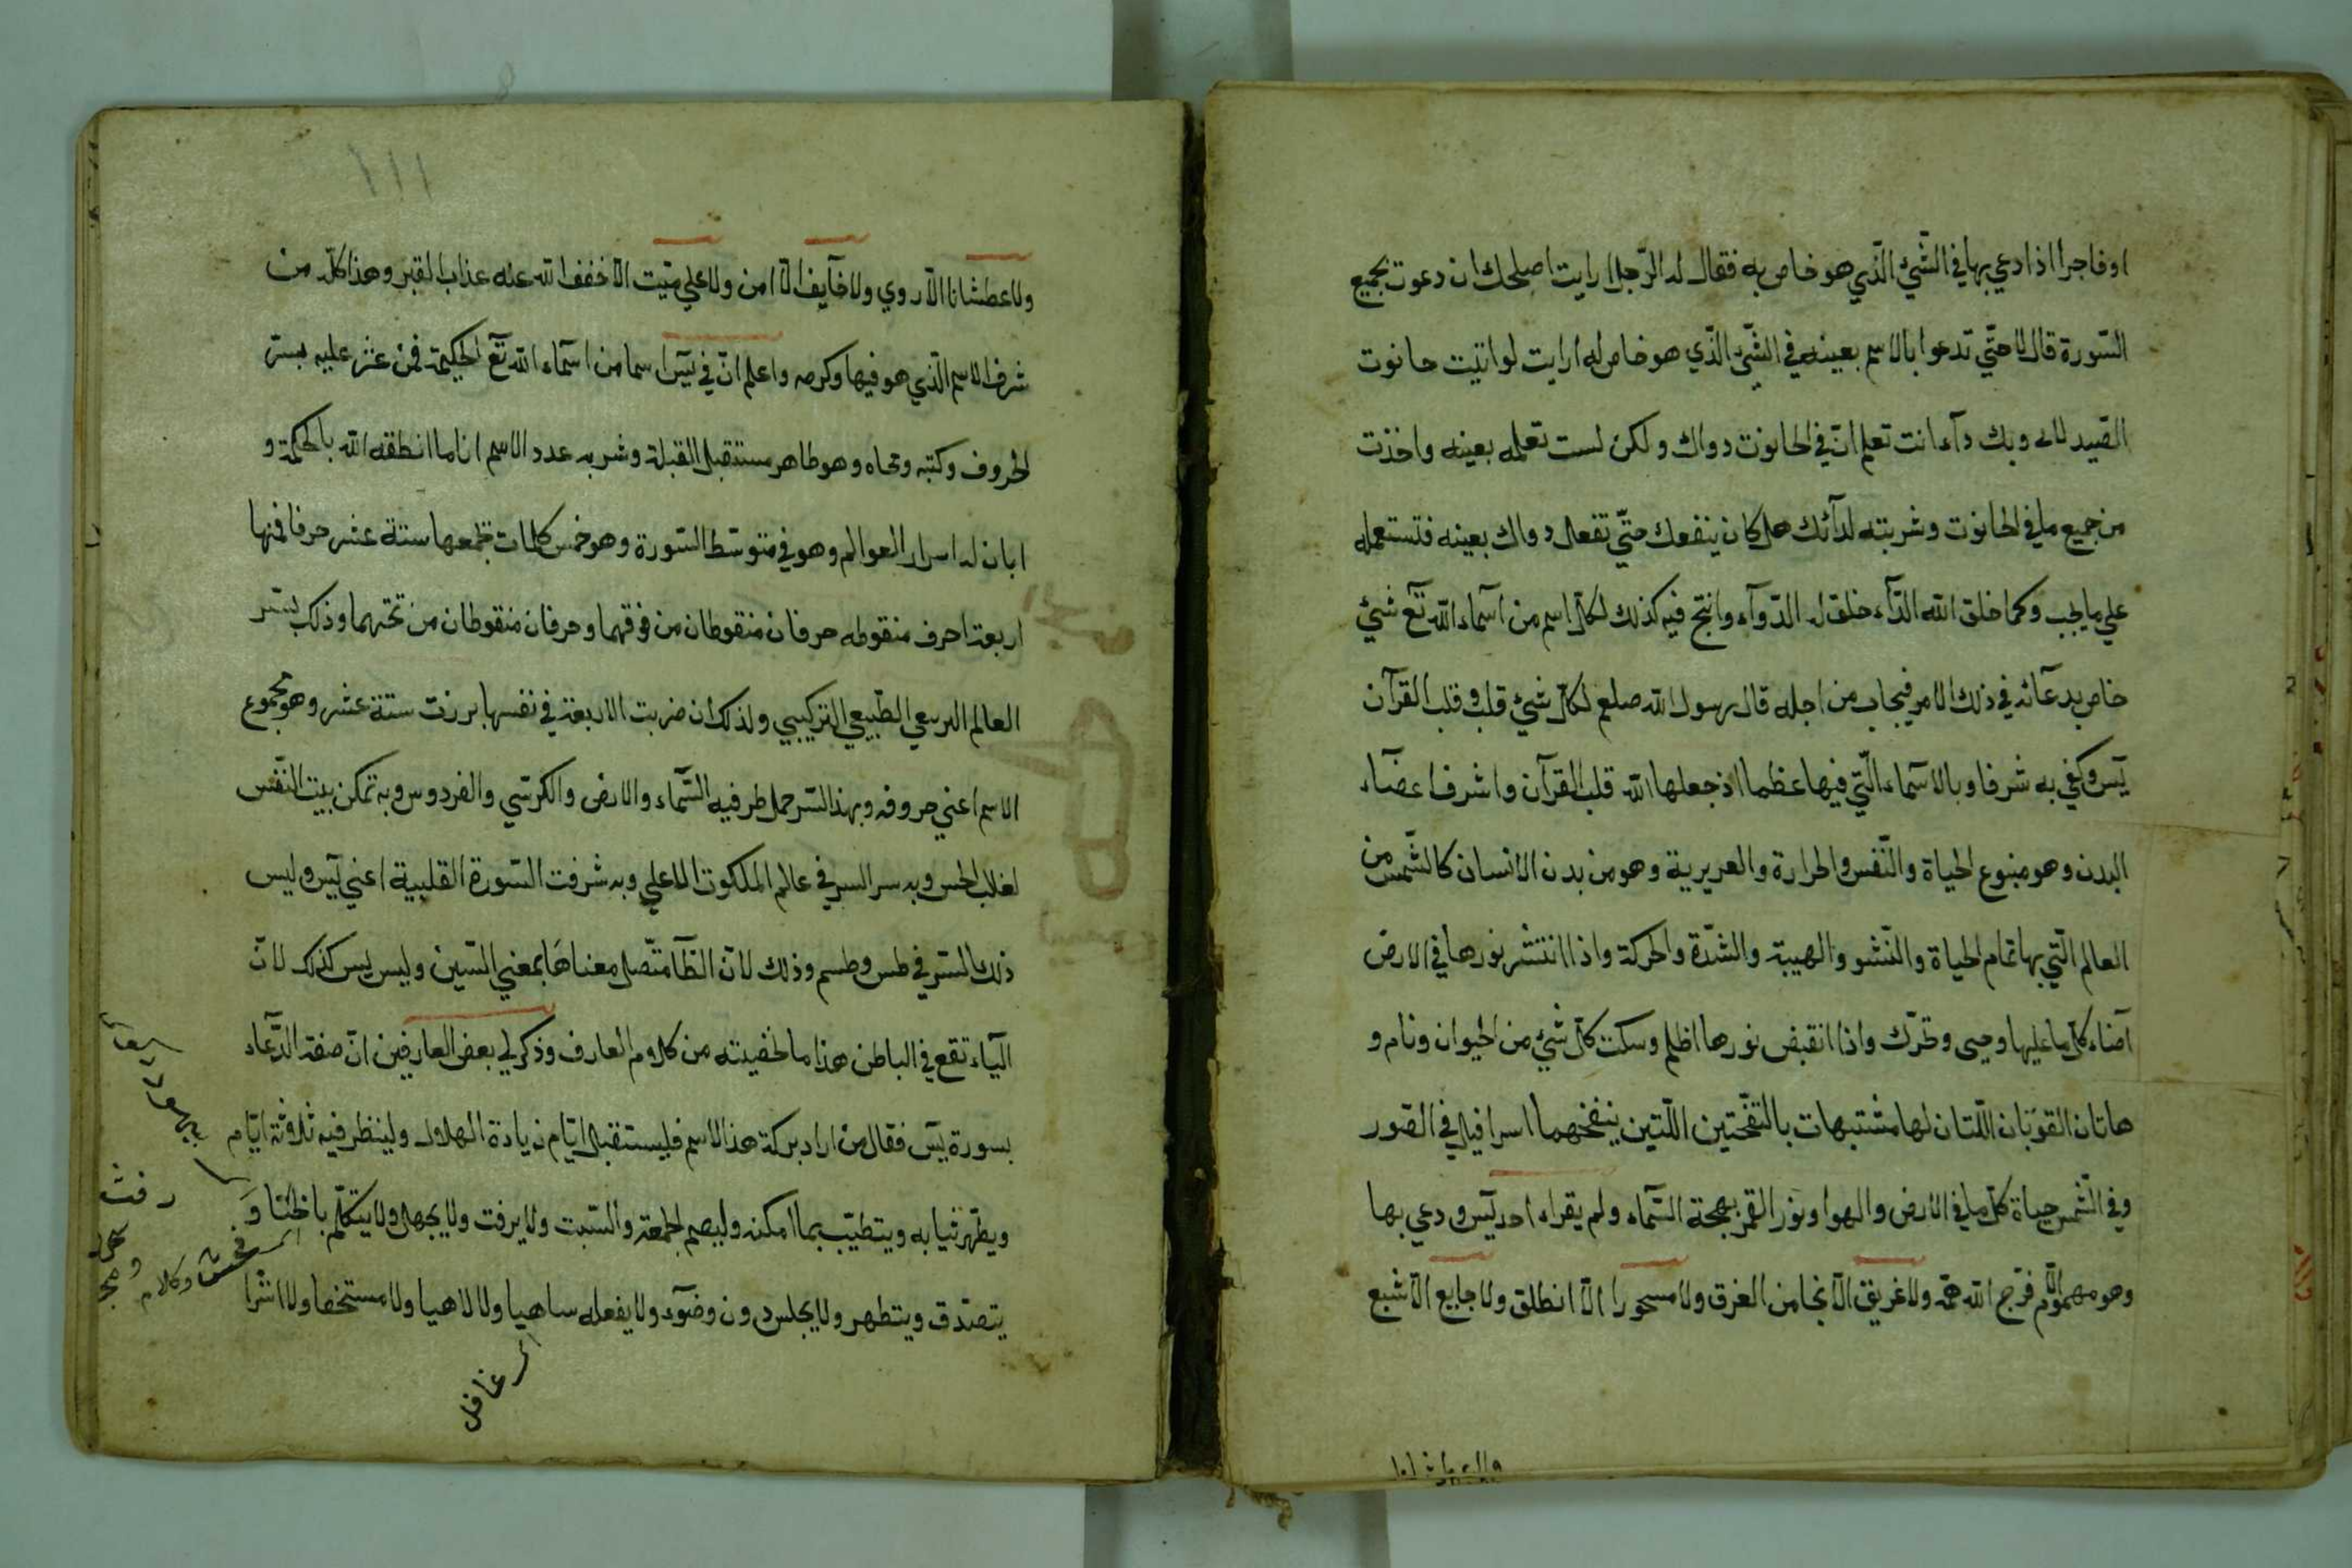 اوفاجرا اذا دعي بها في الشّيئ الّذي هو خاص به فقال له الرّجل ارايت اصلحك ان دعوت بجميع
السّورة قال لا حتّي تدعوا بالاسم بعينه في الشّيئ الّذي هو خاص له ارايت لو اتيت حانوت
وبك دآء انت تعلم انّ في الحانوت دواك ولكن لست تعلمه بعينه واخذت
من جميع ما في الحانوت وشربته لدآئك هل كان ينفعك حتّي تفعل دواك بعينه فتستعمله
علي ما يجب وكما خلق الله الدّآء خلق له الدّوآء وانتج فيه كذلك لكلّ اسم من اسمآء الله تع شيئ
خاص بدعآئه في ذلك الامر فيجاب من اجله قال رسول الله صلعم لكلّ شيئ قلب وقلب القرآن
يس وكفي به شرفا وبالاسمآء الّتي فيها عظما اذ جعلها الله قلب القرآن واشرف اعضآء
البدن وهو منبوع الحياة والنّفس والحرارة والعريرية وهو من بدن الانسان كالشّمس من
العالم الّتي بها تمام الحياة والنّشو والهيبة والشّدّة والحركة واذا انتشر نورها في الارض
اضآء كلّ ما عليها وحيى وتحرّك واذا انقبض نورها اظلم وسكت كلّ شيئ من الحيوان ونام و
هاتان القوّتان اللّتان لها مشتبهات بالنّفختين اللّتين ينفخهما اسرافيل في الصّور
وفي الشّمس حياة كلّ ما في الارض والهوا ونور القمر بهجة السّمآء ولم يقراء احد يس ودعي بها
وهو مهموم الّا فرّج الله همّه ولا غريق الّا نجا من الغرق ولا مسحورا الّا انطلق ولا جايع الّا شبع
١١١
ولا عطشانا الّا روي ولا خآيف الّا امن ولا علي ميّت الّا خفف الله عنه عذاب القبر وهذا كلّه من
شرف الاسم الّذي هو فيها وكرمه واعلم انّ في يس اسما من اسمآء الله تع الحكيمة فمن عثر عليه بستر
الحروف وكتبه ومحاه وهو طاهر مستقبل القبلة وشربه عدد الاسم اناما انطقه الله بالحكمة و
ابان له اسرار العوالم وهو في متوسّط السّورة وهو خمس كلمات تجمعها ستة عشر حرفا فمنها
اربعة احرف منقوطه حرفان منقوطان من فوقهما وحرفان منقوطان من تحتهما وذلك لستر
العالم الطّبيعي التركيبي ولذلك ان ضربت الاربعة في نفسها برزت ستة عشر وهو مجموع
الاسم اعني حروفه وبهذا السّر حمل طرفيه السّمآء والارض والكرسّي والفردوس وبه تمكن بيت النّفس
لغلاب الحس وبه سر السر في عالم الملكوت الاعلي وبه شرفت السّورة القلبية اعني يس وليس
ذلك السّر في طس وطسم وذلك لانّ الطّآ متّصل معناها بمعني السّين وليس يس كذلك لانّ
اليآء تقع في الباطن هذا ما لخصته من كلام العارف وذكر لي بعض العارفين انّ صفة الدّعآء
بسورة يس فقال من اراد بركة هذا الاسم فليستقبل ايّام زيادة الهلال ولينظر فيه ثلاثة ايّام
ويطّهر ثيابه ويتطيّب بما امكنه وليصم الجمعة والسّبت ولا يرفث ولا يجهل ولا يتكلّم باخنا و
يتصدّق ويتطهر ولا يجلس دون وضوء ولا يفعله ساهيا ولا لاهيا ولا مستخفا ولا اشرا
رفث
فحش وكلام
غافل